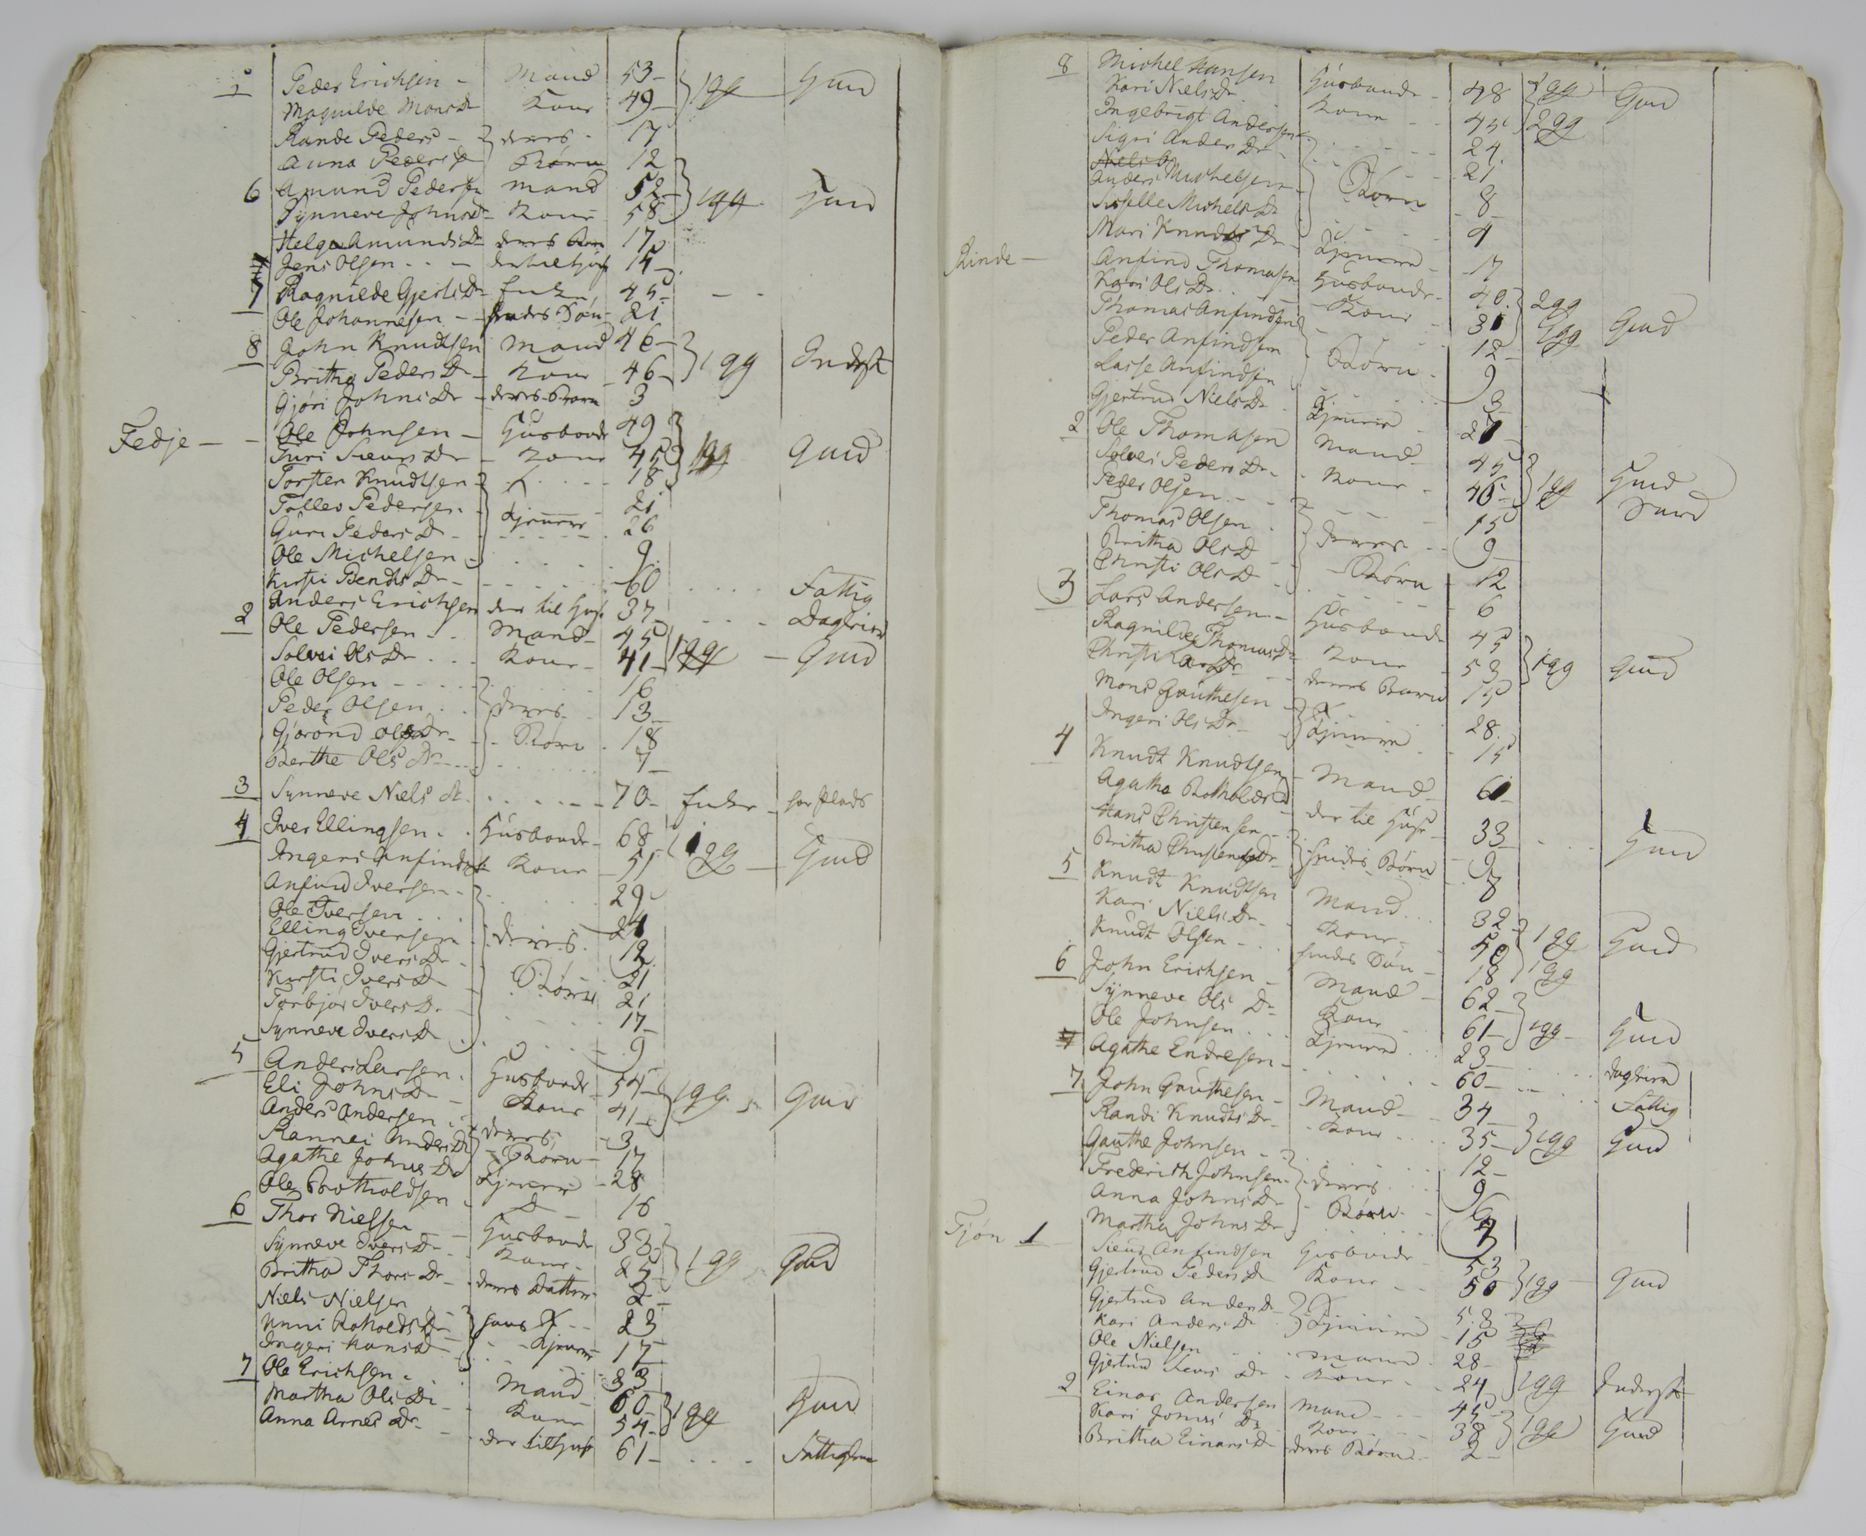 Peder Erichsen - Mand 53- 1 gg Gmd
Magnilde Mons Dr Kone 49-
Rande Peders - deres - 17
Anna Peders D Børn 12
6 Amund Pedersen Mand 52- 1 gg Gmd
Synneve Johns D- Kone 58-
Helga Amunds Dr deres Barn 17
Jens Olsen . . - der til huse 15-
7 Ragnilde Gjerts Dr Enke 45- - . .
Ole Johannesen - - hendes Søn - 21
8 John Knudtsen Mand 46- 1 gg Inderst
Britha Peders Dr - Kone 46-
Gjøri Johns Dr - deres Barn 3
Fedje - - Ole Johnsen - Husbonde 49 1 gg Gmd
Guri Sieurs Dr - Kone 45
Torsten Knudtsen - 18
Tollev Pedersen - Tjenere 21
Guri Peders D - 26
Ole Michelsen - 9
Kirsti Bendts Dr - 60 . . . . Fattig
Anders Erichsen der til Huse 37- . . . . Dagleier
2 Ole Pedersen - . Mand 45 1 gg - Gmd
Solvei Ols Dr . . . Kone - 41-
Ole Olsen - - - . 16
Peder Olsen . . deres 13-
Gjørond Ols Dr - Børn . 18
Berthe Ols Dr - . . . 7-
3 Synneve Niels D. . . . - - 70- Enke - har Plads
4 Iver Ellingsen . . Husbonde - 68 1 gg - Gmd
Ingeri Anfinds Dr Kone 51
Anfind Iversen - 29
Ole Iversen . . . 24
Elling Iversen deres 12
Gjertrud Ivers Dr - Børn 21
Kirsti Ivers D - 21
Torbjør Ivers Dr - 17-
Synneve Ivers D . 9
5 Anders Larsen . Husbonde 54- 1 gg. Gmd
Eli Johns D - Kone 41-
Anders Andersen . deres 3
Rannei Anders D Børn - 17
Agathe Johns Dr Tjenere - 28
Ole Botholdsen - D - 16
6 Thor Nielsen - Husbonde 33 1 gg Gmd
Synneve Ivers Dr - Kone - 25
Britha Thors Dr - deres Datter 2-
Niels Nielsen . 23
Unni Botholds Dr hans Tjenere 17
Ingeri Hans D - 23
7 Ole Erichsen . Mand 60- 1 gg Gmd
Martha Ols Dr - Kone 54-
Anna Arnes Dr - der til huse 61- . . . Fattig
8 Michel Hansen Husbonde - 48 1 gg Gmd
Kari Niels Dr Kone - - 45 2 gg
Ingebrigt Andersen 24
Sigri Anders Dr - 21
Anders Michelsen - Børn 8
Siselle Michels Dr 4
Mari Knuds Dr - Tjenere - 17
Rinde - Anfind Thomasen Husbonde - 40 2 gg Gmd
Kari Ols Dr . Kone - 31 1 gg
Thomas Anfindsen 12-
Peder Anfindsen Børn - 9
Lasse Anfindsen 3
Gjertrud Niels Dr Tjenere 27-
2 Ole Thomasen Mand - 45 1 gg Gmd
Solvei Peders Dr - Kone - 46-
Peder Olsen - . - 15
Thomas Olsen . deres - - 9
Britha Ols D - Børn 12
Christi Ols D - 6
3 Lars Andersen - - Husbonde 45 1 gg Gmd
Ragnilde Thomas Dr Kone 53
Christi Lars Dr deres Barn 15
Mons Gauthesen - Tjenere 28.
Ingeri Ols Dr - 15
4 Knudt Knudtsen - Mand - 61-
Agathe Botholds D der til Huse - 33 - . . . Gmd
Hans Christensen - hendes Børn 9
Britha Christens Dr 8
5 Knudt Knudtsen Mand . . 32 1 gg Gmd
Kari Niels Dr - Kone - 50 1 gg
Knudt Olsen - . . hendes Søn - 18
6 John Erichsen - Mand - 62- 1 gg - Gmd
Synneve Ols Dr Kone . 61-
Ole Johnsen . . . Tjenere . . 23-
Agathe Endresen - 60- - . . . Fattig
7 John Gauthesen - Mand - 34- 1 gg Gmd
Randi Knuds Dr - Kone . . . 35-
Gauthe Johnsen - . 12-
Frederich Johnsen - deres . . 9
Anna Johns Dr Børn - 6
Martha Johns Dr
Tjøn 1 - Sieur Anfindsen Husbonde 53 1 gg Gmd
Gjertrud Peders D Kone - - 50
Gjertrud Anders D 53
Kari Anders Dr Tjenere - 15
Ole Nielsen . . . Mand . 28-
Gjertrud Sieurs Dr - Kone - - 24 1 gg Inderst
2 Einar Andersen Mand - - - 45- 1 gg Gmd
Kari Johns Dr Kone - - 38
Britha Einars D deres Børn - 2-